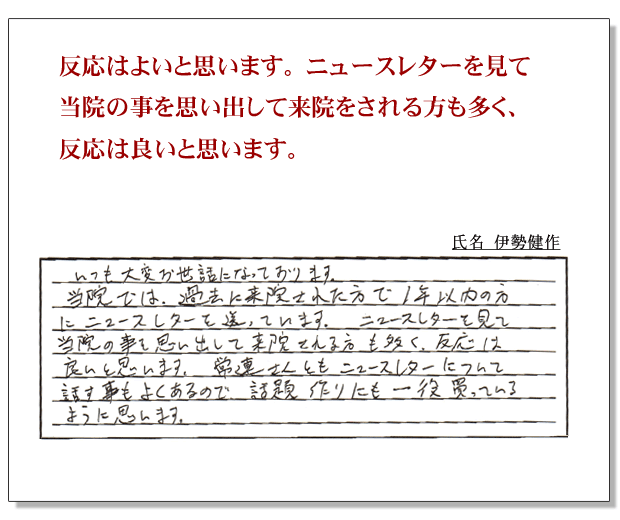 反応はよいと思います。ニュースレターを見て
当院の事を思い出して来院をされる方も多く、
反応は良いと思います。
氏名 伊勢健作
いつも大変お世話になっております。
当院では、過去に来院された方で1年以内の方
にニュースレターを送っています。 ニュースレターを見て
当院の事を思い出して来院される方も多く、反応は
良いと思います。 常連さんともニュースレターについて
話す事もよくあるので 話題作りにも一役買っている
ように思います。